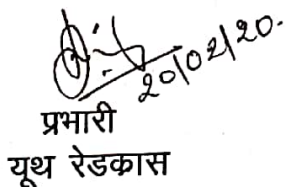 20/02/20.
प्रभारी
यूथ रेडकास